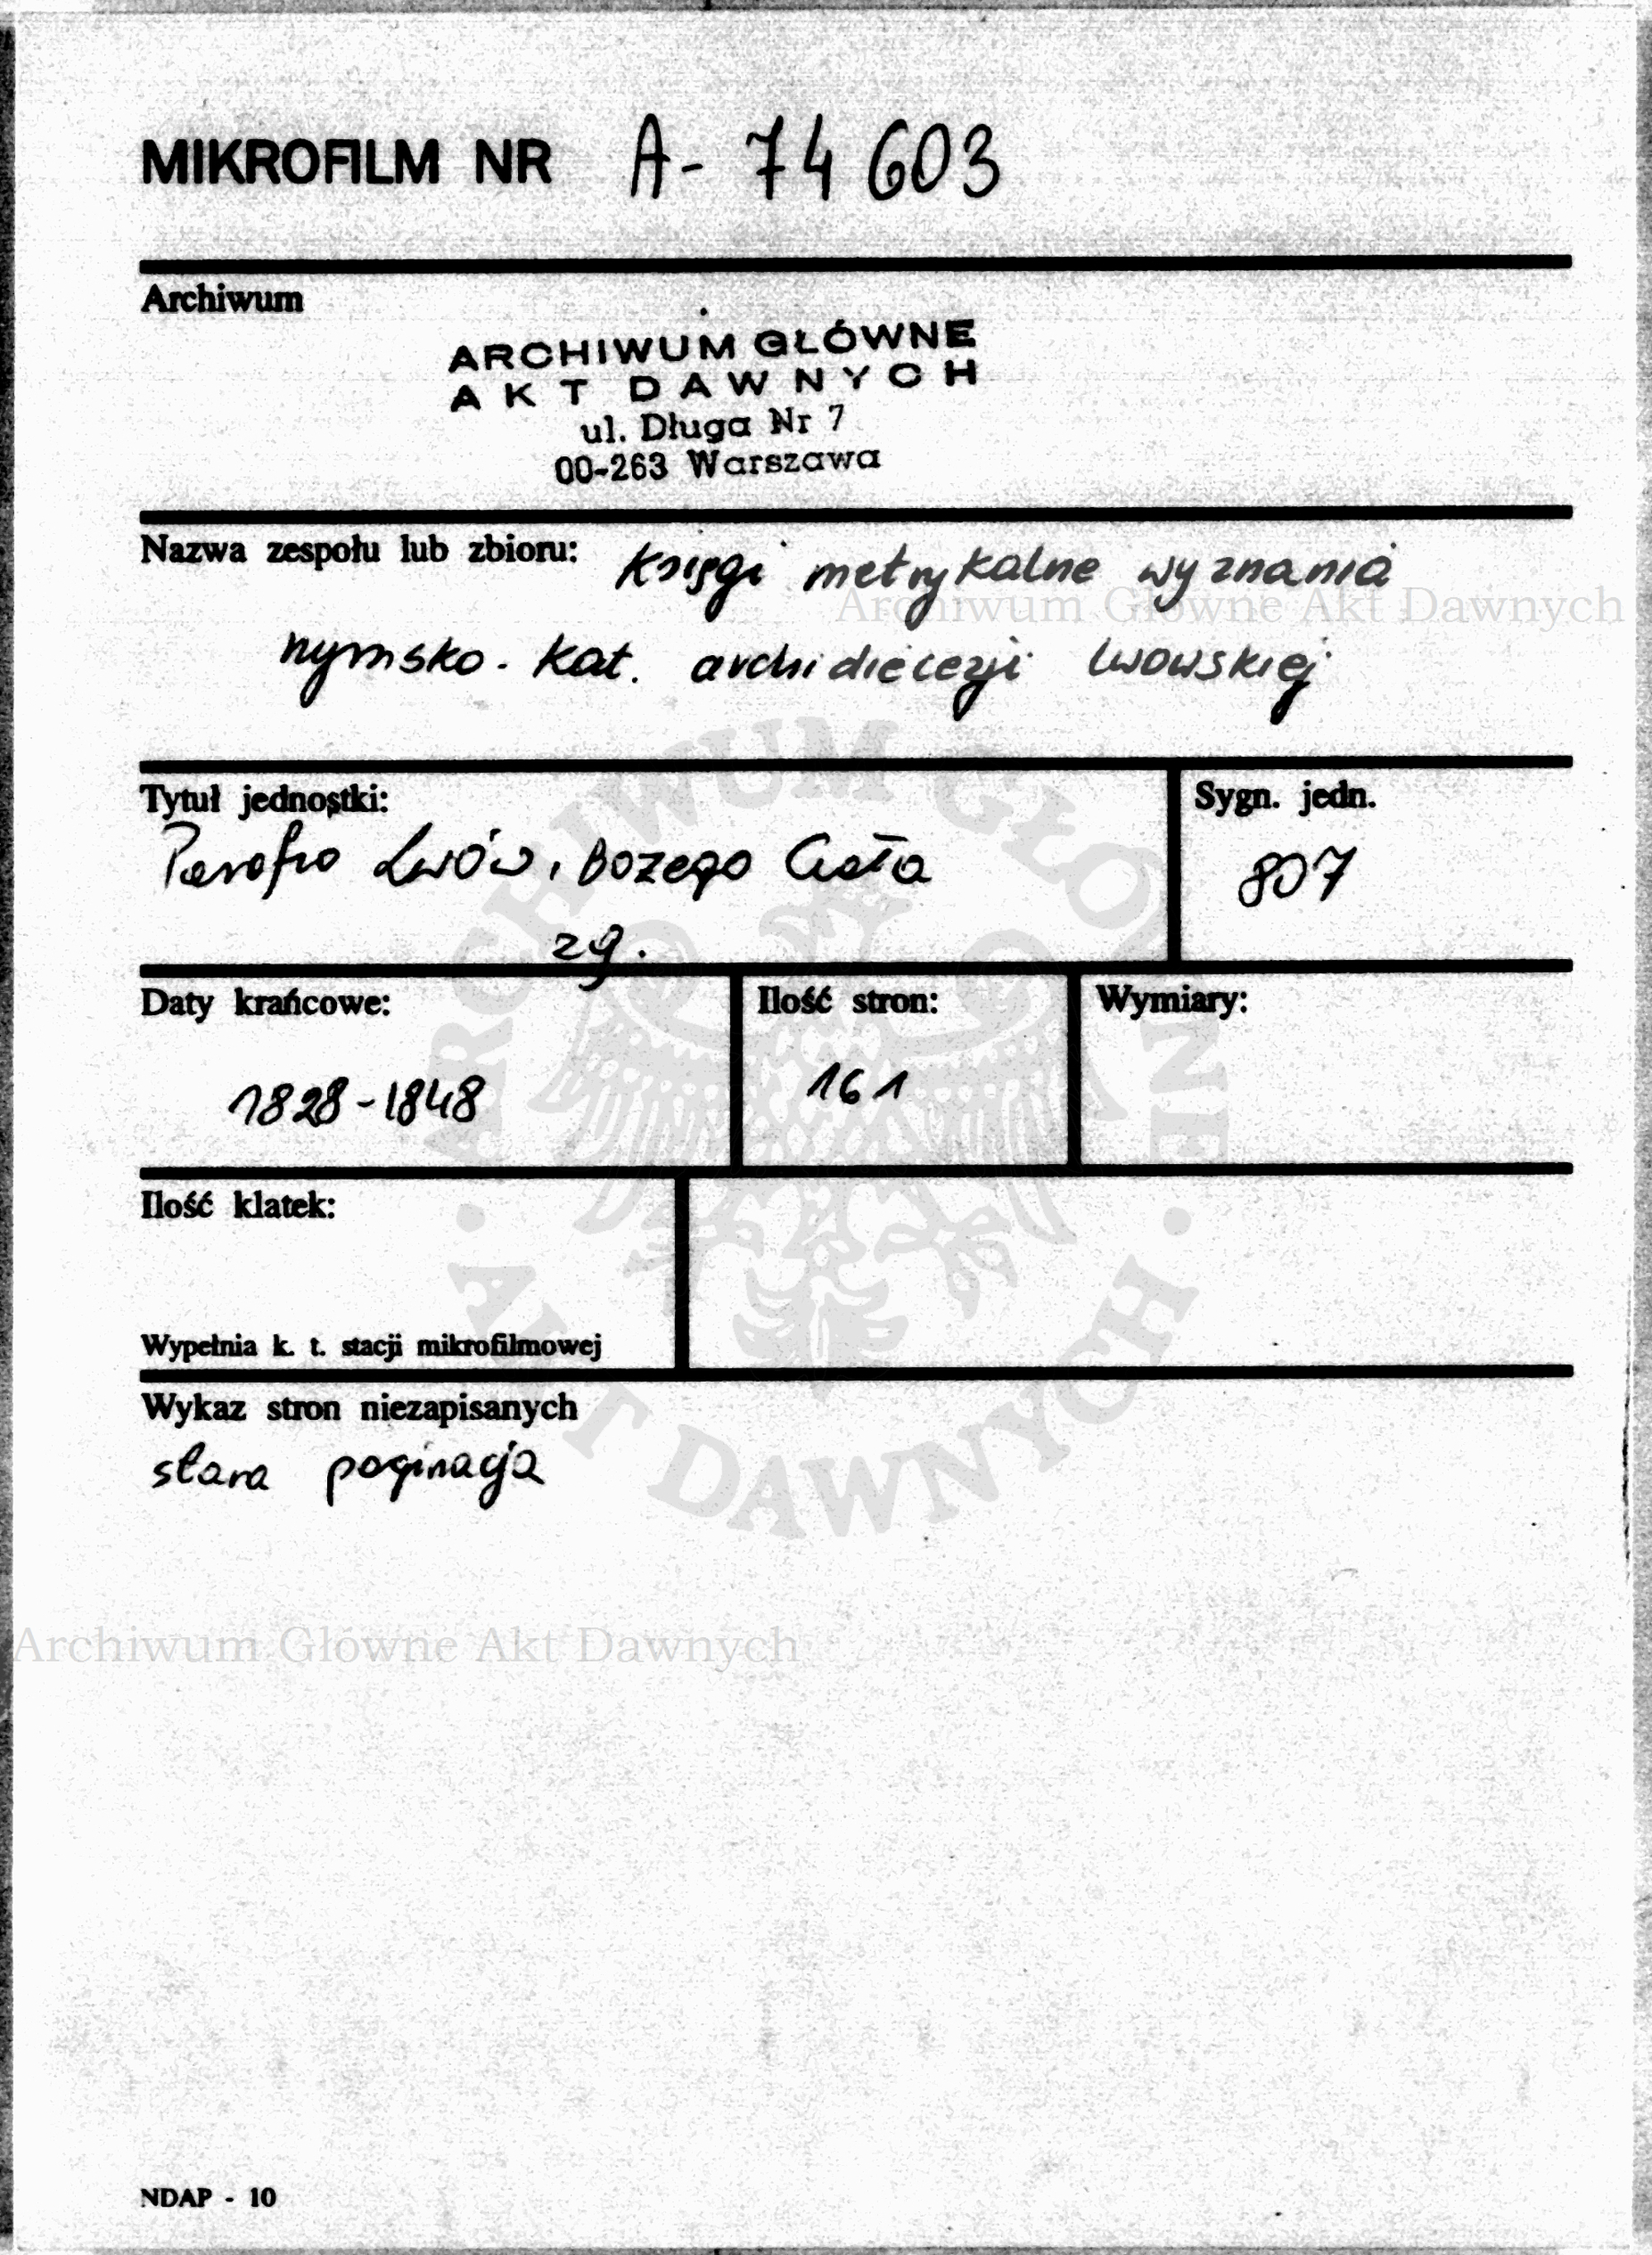 MIKROFILM NR A-74603
Archiwum
ARCHIWUM GŁÓWNE
AKT DAWNYCH
ul. Długa Nr 7
00-263 Warszawa
Nazwa zespołu lub zbioru: Księgi metrykalne wyznania
Archiwum Główne Akt Dawnych
rzymsko-kat. archidiecezji lwowskiej
Tytuł jednostki:
Parafia Lwów, Bożego Ciała
zg.
Sygn. jedn.
807
Daty krańcowe:
1828-1848
Ilość stron:
161
Wymiary:
Ilość klatek:
Wypełnia k. t. stacji mikrofilmowej
Wykaz stron niezapisanych
stara paginacja
ARCHIWUM GŁÓWNE AKT DAWNYCH
Archiwum Główne Akt Dawnych
NDAP - 10